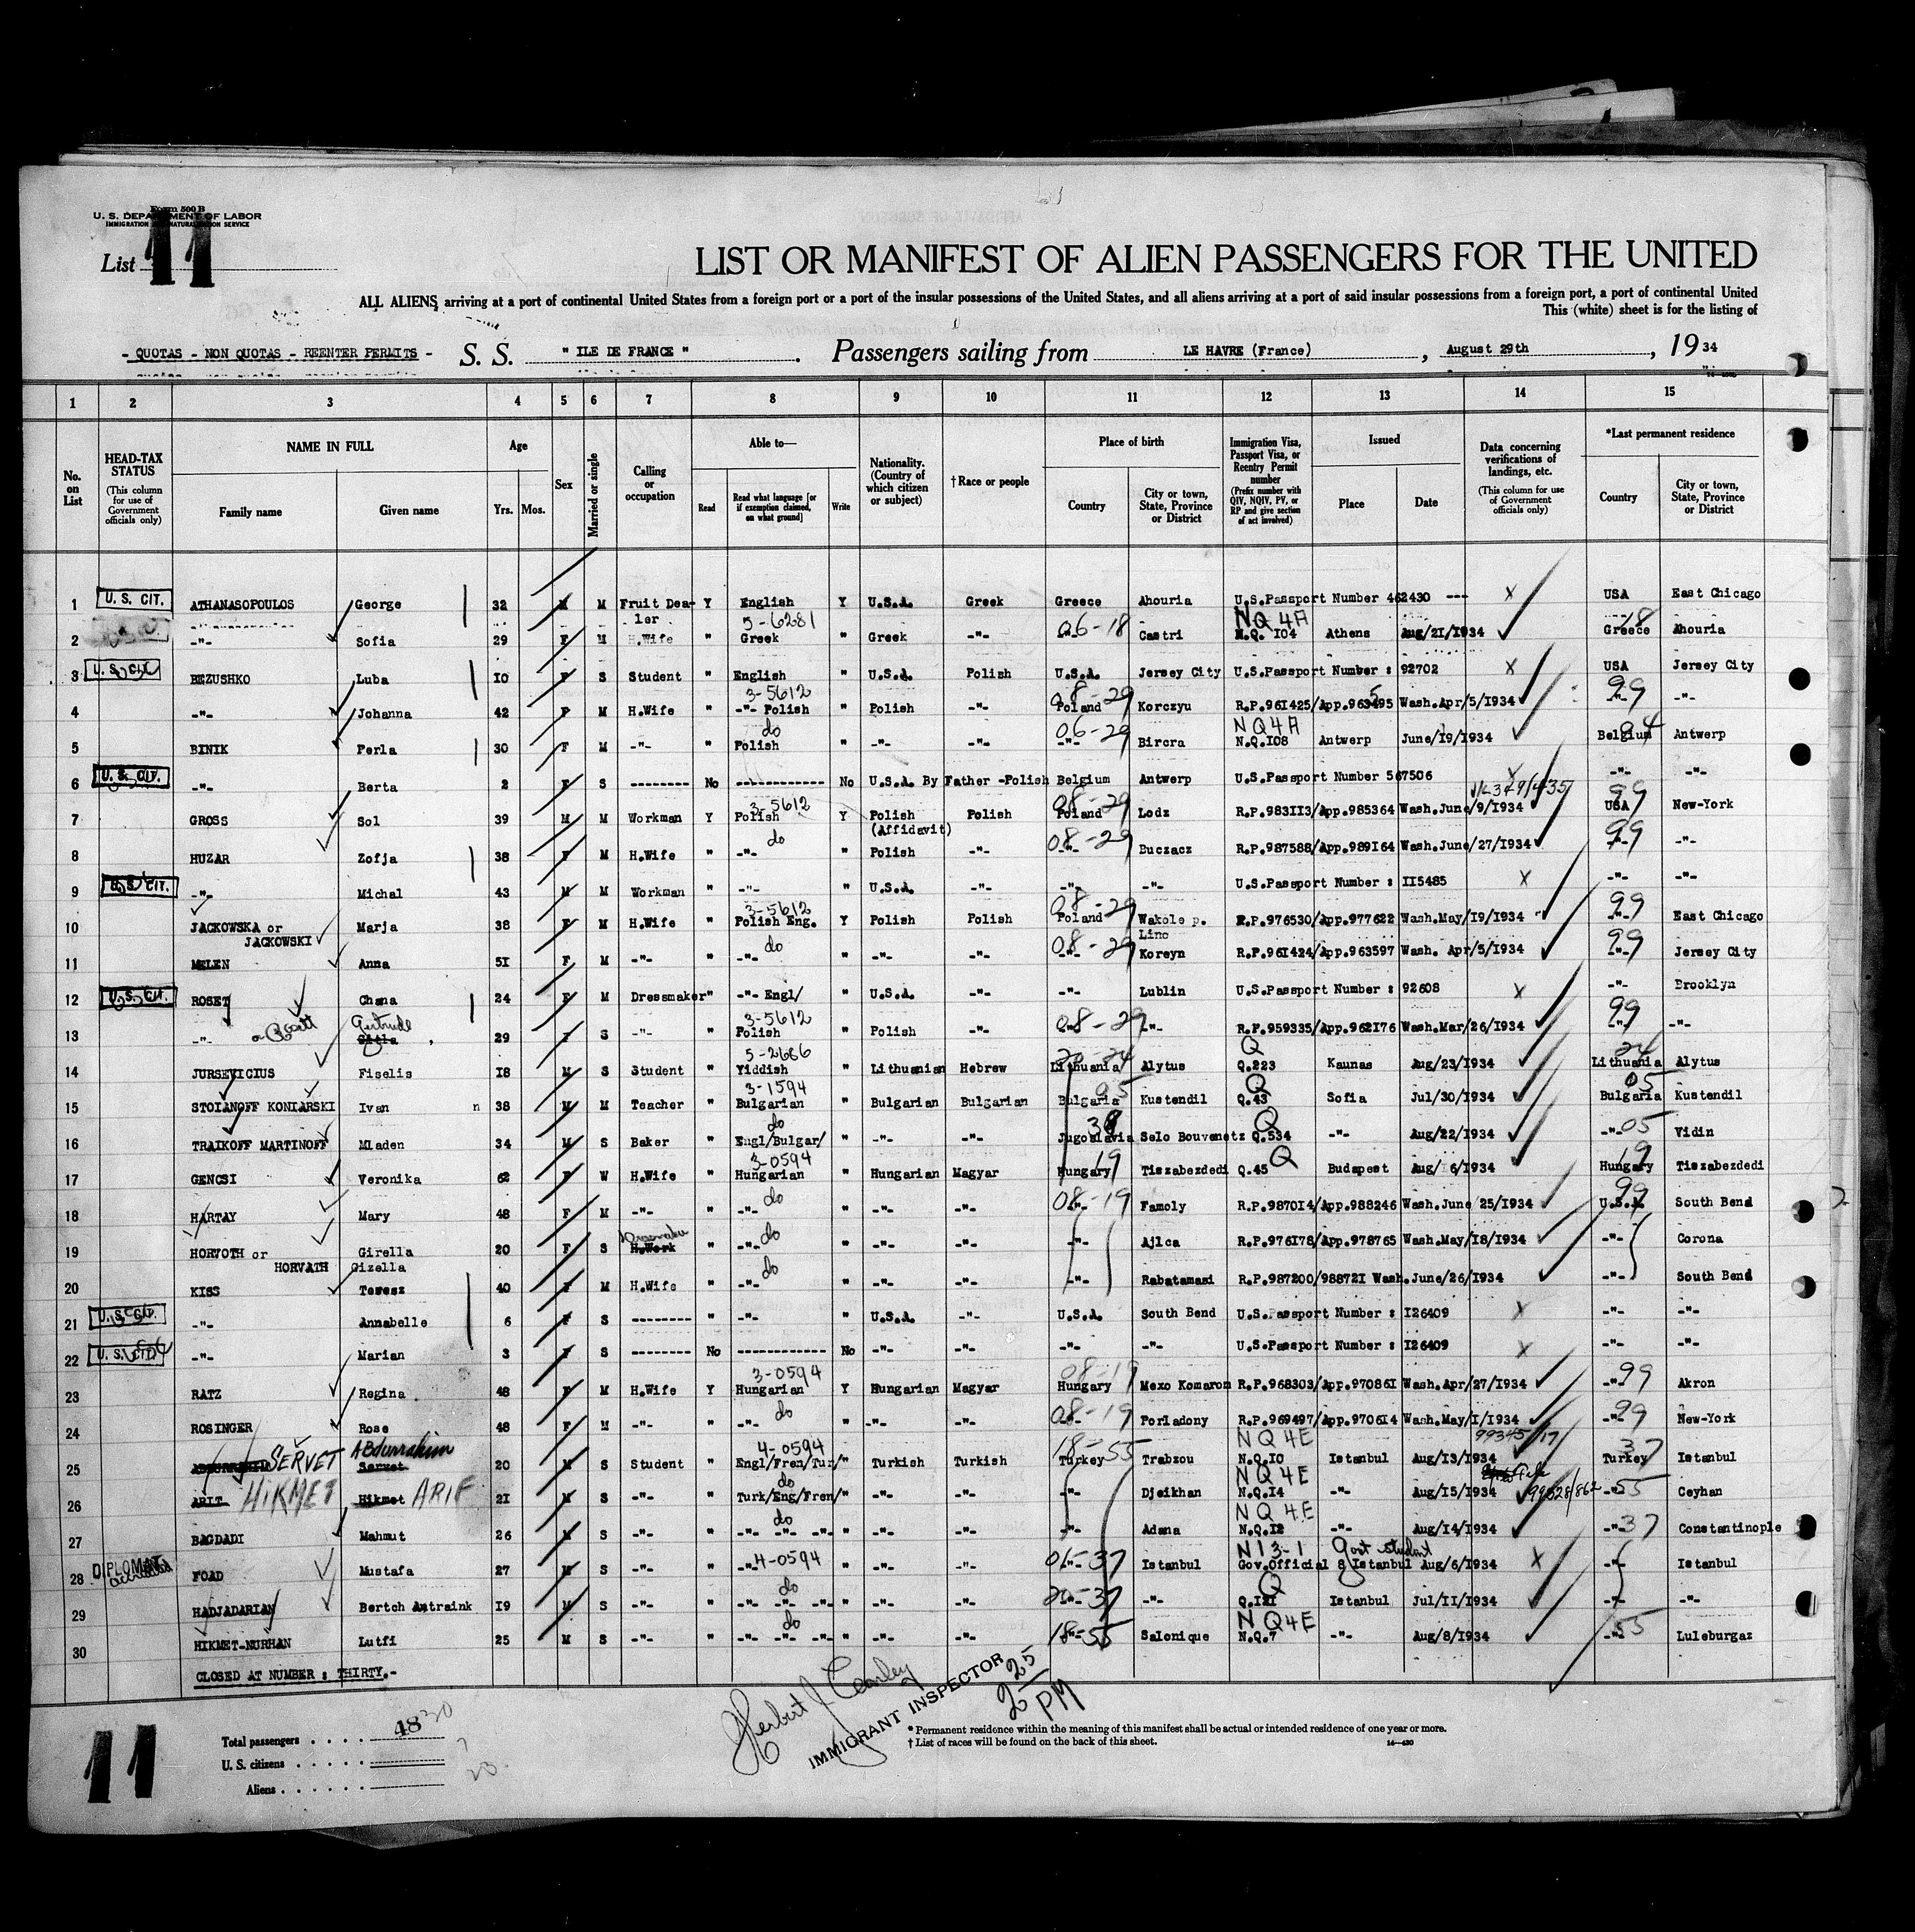 Form 500 B
U. S. DEPARTMENT OF LABOR
IMMIGRATION AND NATURALIZATION SERVICE
List 11
LIST OR MANIFEST OF ALIEN PASSENGERS FOR THE UNITED
ALL ALIENS arriving at a port of continental United States from a foreign port or a port of the insular possessions of the United States, and all aliens arriving at a port of said insular possessions from a foreign port, a port of continental United
This (white) sheet is for the listing of
- QUOTAS - NON QUOTAS - REENTER PERMITS - S. S. " ILE DE FRANCE " . Passengers sailing from LE HAVRE (France) , August 29th , 19 34
1 2 3 4 5 6 7 8 9 10 11 12 13 14 15
No. on List
HEAD-TAX STATUS (This column for use of Government officials only)
NAME IN FULL Family name Given name
Age Yrs. Mos.
Sex
Married or single
Calling or occupation
Able to— Read Read what language [or if exemption claimed, on what ground] Write
Nationality. (Country of which citizen or subject)
†Race or people
Place of birth Country City or town, State, Province or District
Immigration Visa, Passport Visa, or Reentry Permit number (Prefix number with QIV, NQIV, PV, or RP and give section of act involved)
Issued Place Date
Data concerning verifications of landings, etc. (This column for use of Government officials only)
*Last permanent residence Country City or town, State, Province or District
1 U. S. CIT. ATHANASOPOULOS George 32 M M Fruit Dealer Y English Y U.S.A. Greek Greece Ahouria U.S.Passport Number 462430 --- X USA East Chicago
2 -"- Sofia 29 F M H.Wife " 5-6281 Greek " Greek -"- 06-18 -"- Castri NQ 4A N.Q. 104 Athens Aug/21/1934 18 Greece Ahouria
3 U. S. CIT. BEZUSHKO Luba 10 F S Student " English " U.S.A. Polish U.S.A. Jersey City U.S.Passport Number : 92702 X USA Jersey City
4 -"- Johanna 42 F M H.Wife " 3-5612 -"- Polish " Polish -"- 08-29 Poland Korczyu R.P.961425/App.963495 5 Wash.Apr/5/1934 99 -"- -"-
5 BINIK Perla 30 F M -"- " do Polish " -"- -"- 06-29 -"- Bircra NQ4A N.Q.108 Antwerp June/19/1934 Belgium Antwerp
6 U. S. CIT. -"- Berta 2 F S -------- No ------------ No U.S.A. By Father -Polish Belgium Antwerp U.S.Passport Number 567506 X -"- -"-
7 GROSS Sol 39 M M Workman Y 3-5612 Polish Y Polish (Affidavit) Polish 08-29 Poland Lodz R.P.983113/App.985364 Wash.June/9/1934 99 USA New-York
8 HUZAR Zofja 38 F M H.Wife " do -"- " Polish -"- 08-29 -"- Buczacz R.P.987588/App.989164 Wash.June/27/1934 99 -"- -"-
9 U. S. CIT. -"- Michal 43 M M Workman " -"- " U.S.A. -"- -"- -"- U.S.Passport Number : 115485 X -"- -"-
10 JACKOWSKA or JACKOWSKI Marja 38 F M H.Wife " 3-5612 Polish Eng. Y Polish Polish 08-29 Poland Wakole p. Linc R.P.976530/App.977622 Wash.May/19/1934 99 -"- East Chicago
11 MELEN Anna 51 F M -"- " do -"- " -"- -"- 08-29 -"- Koreyn R.P.961424/App.963597 Wash. Apr/5/1934 99 -"- Jersey City
12 U. S. CIT. ROSET Chana 24 F M Dressmaker " -"- Engl/ " U.S.A. -"- -"- Lublin U.S.Passport Number : 92608 X -"- Brooklyn
13 -"- or Rosett Gertrude 29 F S -"- " 3-5612 Polish " Polish -"- 08-29 -"- -"- R.P.959335/App.962176 Wash.Mar/26/1934 99 -"- -"-
14 JURSEVICIUS Fiselis 18 M S Student " 5-2686 Yiddish " Lithuanian Hebrew Lithuania Alytus Q Q.223 Kaunas Aug/23/1934 24 Lithuania Alytus
15 STOIANOFF KONIARSKI Ivan n 38 M M Teacher " 3-1594 Bulgarian " Bulgarian Bulgarian 05 Bulgaria Kustendil Q Q.43 Sofia Jul/30/1934 05 Bulgaria Kustendil
16 TRAIKOFF MARTINOFF Mladen 34 M S Baker " do Engl/Bulgar/ " -"- -"- Jugoslavia Selo Bouvenetz Q Q.534 -"- Aug/22/1934 -"- 05 Vidin
17 GENCSI Veronika 62 F W H.Wife " 3-0594 Hungarian " Hungarian Magyar 19 Hungary Tiszabezdedi Q.45 Q Budapest Aug/16/1934 19 Hungary Tiszabezdedi
18 HARTAY Mary 48 F M -"- " do -"- " -"- -"- 08-19 -"- Famoly R.P.987014/App.988246 Wash.June 25/1934 99 U.S.A. South Bend
19 HORVOTH or HORVATH Girella Gizella 20 F S H.Work " do -"- " -"- -"- -"- Ajlca R.P.976178/App.978765 Wash.May/18/1934 -"- Corona
20 KISS Teresz 40 F M H.Wife " do -"- " -"- -"- -"- Rabatamasi R.P.987200/988721 Wash.June/26/1934 -"- South Bend
21 U. S. CIT. -"- Annabelle 6 F S -------- " -"- " U.S.A. -"- U.S.A. South Bend U.S.Passport Number : 126409 X -"- -"-
22 U. S. CIT. -"- Marian 3 F S -------- No ------------ No -"- -"- -"- -"- U.S.Passport Number : 126409 X -"- -"-
23 RATZ Regina 48 F M H.Wife Y 3-0594 Hungarian Y Hungarian Magyar 08-19 Hungary Mexo Komarom R.P.968303/App.970861 Wash.Apr/27/1934 -"- 99 Akron
24 ROSINGER Rose 48 F M -"- " do -"- " -"- -"- 08-19 -"- Porladony R.P.969497/App.970614 Wash.May/1/1934 -"- 99 New-York
25 SERVET Abdurrahim Servet 20 M S Student " 4-0594 Engl/Fren/Tur/ " Turkish Turkish 18-55 Turkey Trabzou NQ4E N.Q.10 Istanbul Aug/13/1934 99345/17 37 Turkey Istanbul
26 ARIT HIKMET Hikmet ARIF 21 M S -"- " do Turk/Eng/Fren/ " -"- -"- -"- Djeikhan NQ4E N.Q.14 -"- Aug/15/1934 99528/862 -"- 55 Ceyhan
27 BAGDADI Mahmut 26 M S -"- " do -"- -"- -"- " -"- -"- -"- Adana NQ4E N.Q.12 -"- Aug/14/1934 -"- 37 Constantinople
28 DIPLOMAT FOAD Mustafa 27 M S -"- " -"- 4-0594 " -"- -"- 06-37 Istanbul N 13-1 Govt student Gov.Official 8 Istanbul Aug/6/1934 X -"- Istanbul
29 HADJADARIAN Bertch Antraink 19 M S -"- " do -"- -"- -"- " -"- -"- 20-37 -"- Q Q.121 Istanbul Jul/11/1934 -"- -"-
30 HIKMET-NURHAN Lutfi 25 M S -"- " do -"- -"- -"- " -"- -"- 18-55 Salonique NQ4E N.Q.7 -"- Aug/8/1934 -"- 55 Luleburgaz
CLOSED AT NUMBER : THIRTY.-
11
Total passengers . . . . 48 30
U. S. citizens . . . . .
Aliens . . . . . .
Herbert J
IMMIGRANT INSPECTOR
2 25 PM
* Permanent residence within the meaning of this manifest shall be actual or intended residence of one year or more.
† List of races will be found on the back of this sheet.
14—430